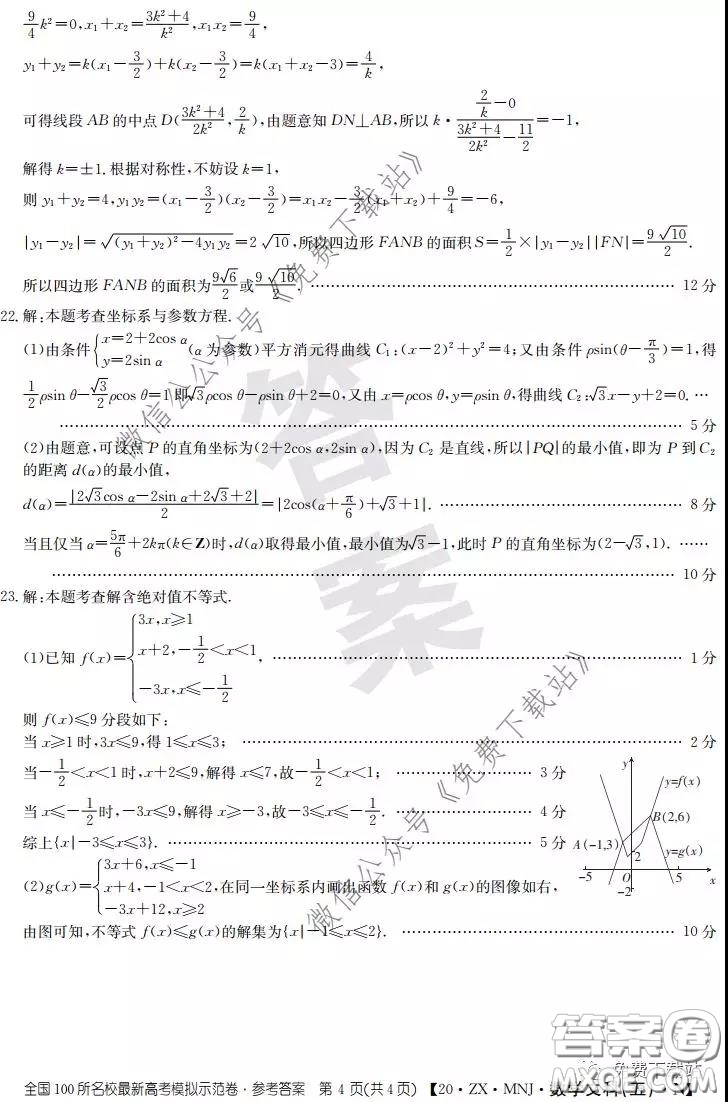 9/4 k²=0,x₁+x₂=(3k²+4)/k²,x₁x₂=9/4,
y₁+y₂=k(x₁-3/2)+k(x₂-3/2)=k(x₁+x₂-3)=4/k,
可得线段AB的中点D((3k²+4)/2k²,2/k),由题意知DN⊥AB,所以k·(2/k-0)/((3k²+4)/2k²-11/2)=-1,
解得k=±1.根据对称性,不妨设k=1,
则y₁+y₂=4,y₁y₂=(x₁-3/2)(x₂-3/2)=x₁x₂-3/2(x₁+x₂)+9/4=-6,
|y₁-y₂|=√((y₁+y₂)²-4y₁y₂)=2√10,所以四边形FANB的面积S=1/2×|y₁-y₂||FN|=9√10/2.
所以四边形FANB的面积为9√6/2或9√10/2. …… 12分
22.解:本题考查坐标系与参数方程.
(1)由条件{x=2+2cos α
y=2sin α (α为参数)平方消元得曲线C₁:(x-2)²+y²=4;又由条件ρsin(θ-π/3)=1,得
1/2ρsin θ-√3/2ρcos θ=1即√3ρcos θ-ρsin θ+2=0,又由x=ρcos θ,y=ρsin θ,得曲线C₂:√3x-y+2=0. …
…… 5分
(2)由题意,可设点P的直角坐标为(2+2cos α,2sin α),因为C₂是直线,所以|PQ|的最小值,即为P到C₂
的距离d(α)的最小值,
d(α)=|2√3cos α-2sin α+2√3+2|/2=|2cos(α+π/6)+√3+1|. …… 8分
当且仅当α=5π/6+2kπ(k∈Z)时,d(α)取得最小值,最小值为√3-1,此时P的直角坐标为(2-√3,1). ……
…… 10分
23.解:本题考查解含绝对值不等式.
(1)已知f(x)={3x,x≥1
x+2,-1/2<x<1, …… 1分
-3x,x≤-1/2
则f(x)≤9分段如下:
当x≥1时,3x≤9,得1≤x≤3; …… 2分
当-1/2<x<1时,x+2≤9,解得x≤7,故-1/2<x<1; …… 3分
当x≤-1/2时,-3x≤9,解得x≥-3,故-3≤x≤-1/2. …… 4分
综上{x|-3≤x≤3}. …… 5分
(2)g(x)={3x+6,x≤-1
x+4,-1<x<2,在同一坐标系内画出函数f(x)和g(x)的图像如右,
-3x+12,x≥2
由图可知,不等式f(x)≤g(x)的解集为{x|-1≤x≤2}. …… 10分
y
y=f(x)
B(2,6)
A(-1,3)
y=g(x)
2
-5
O
5
x
-2
微信公众号《免费下载站》
答案
微信公众号《免费下载站》
答案卷
免费下载站
全国100所名校最新高考模拟示范卷·参考答案 第4页(共4页) 【20·ZX·MNJ·数学文科(五)